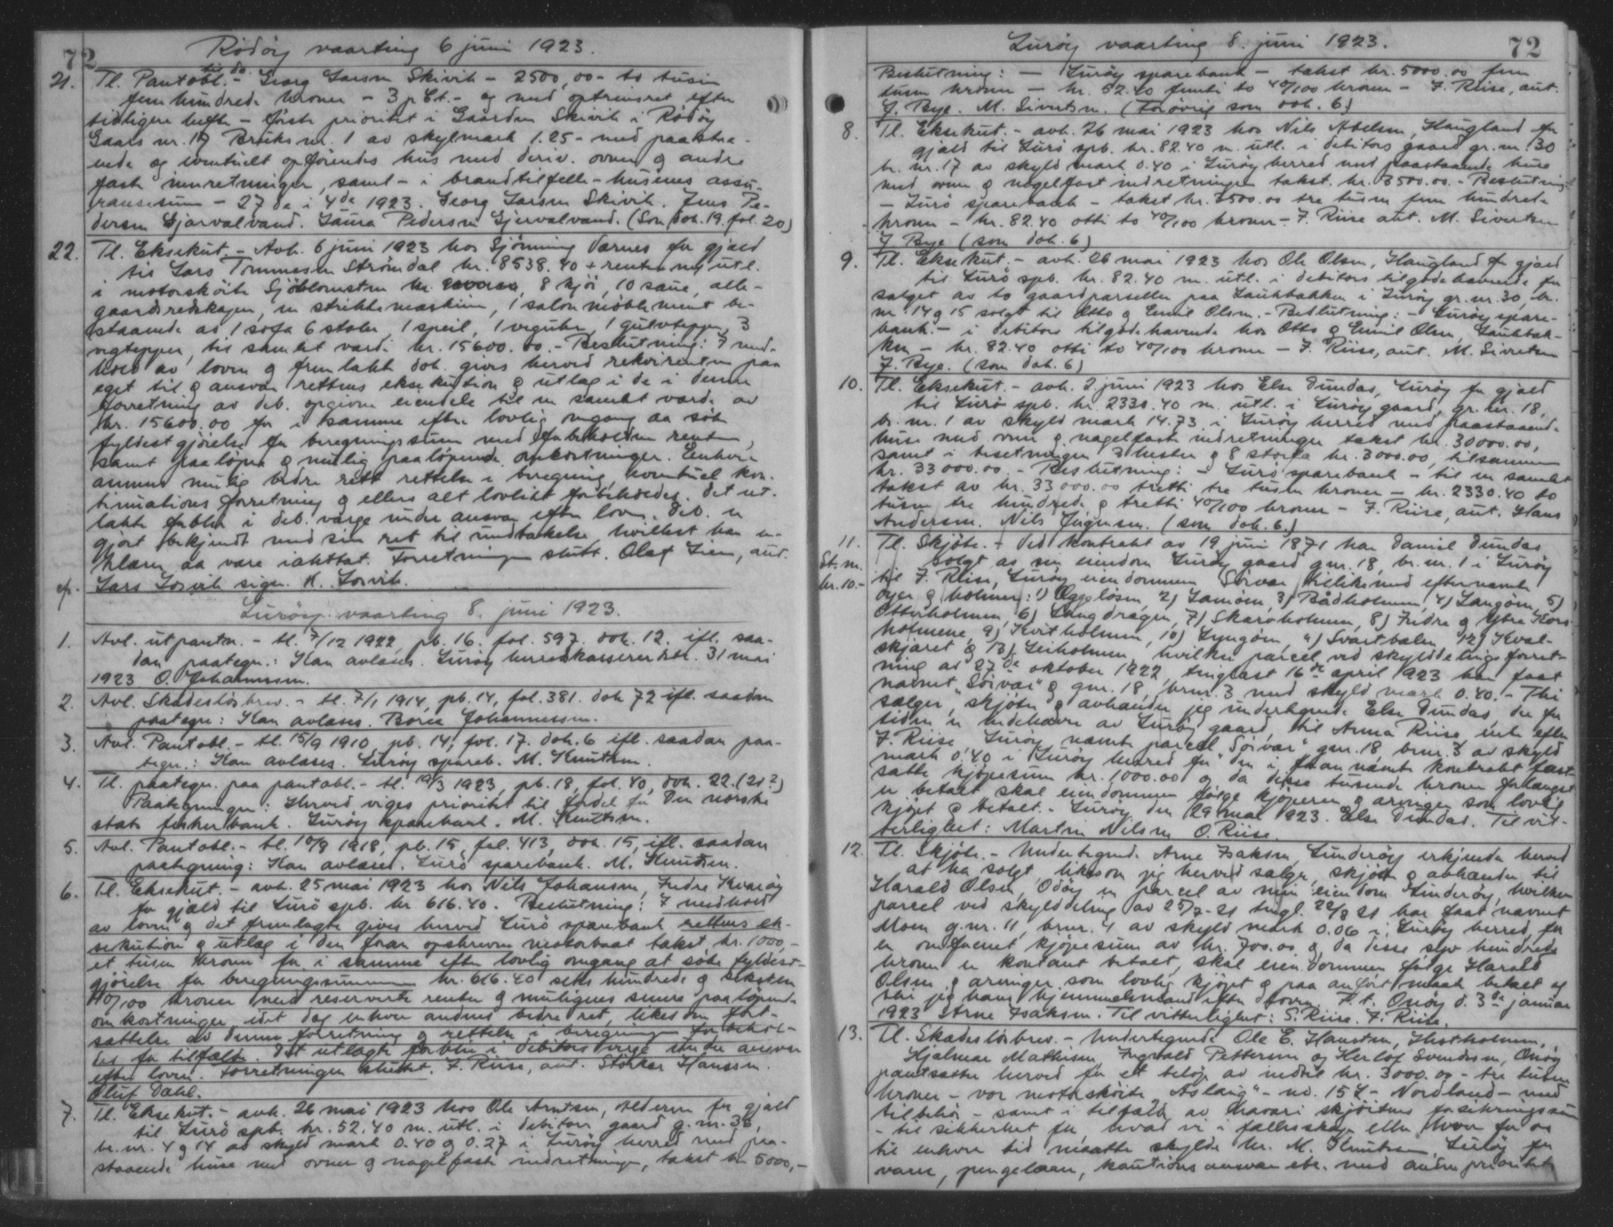 72
Rödöy vaarting 6 juni 1923.
21. Tl. Pantobl. til do Georg Larsen Skivik - 2500,00 - to tusin
fem hundrede kroner - 3 p Ct. - og med optrinsret efter
tidligere heft - förste prioritet i Gaarden Skivik i Rödöy
Gaards nr. 19 Bruks nr. 1 av skylmark 1.25 - med paastaa-
ende og eventuelt opförendes hus med deriv. ovner og andre
faste innretninger, samt - i brandtilfelle - husenes assu-
ransesum - 27 de i 4de 1923. Georg Larsen Skivik. Jens Pe-
dersen Gjervalvand. Laura Pedersen Gjervalvand. (Som dok. 19. fol. 20)
22. Tl. Eksekut. - Avh. 6 juni 1923 hos Sjönning Varnes for gjæld
til Lars Tommesen Strömdal kr. 8538.40 + renter m. utl.
i motorsköite Sjöblomsten kr. 8 kjör, 10 sauer, alle
gaardredskaper, en strikkemaskin, 1 salonmöblement be-
staaende av 1 sofa 6 stoler, 1 speil, 1 væguhr, 1 gulvteppe, 3
vægtepper, til samlet værdi kr. 15600.00. - Beslutning: I med-
hold av loven og fremlakte dok. gives herved rekvirenten paa
eget til og ansvar rettens eksekution og utlæg i de i denne
forretning av deb. opgivne eiendele til en samlet værdi av
kr. 15600.00 for i samme efter lovlig omgang aa söke
fyldestgjörelse for beregningssum med forbeholdne renter,
samt paalöpne og mulig paalöpende omkostninger. Enhver
annens mulig bedre rett rettelse i beregning, eventuel kon-
tinuations forretning og ellers alt lovlikt forbeholdes. Det ut-
lakte forbler i deb. værge under ansvar efter loven. Deb. er
gjort bekjendt med sin ret til undtakelse hvilket han er-
klærer aa være iakttat. Forretningen slutt. Olaf Lien, aut.
ep. Lars Losvik sign. K. Losvik.
Luröy vaarting 8. juni 1923.
1. Avl. utpantn. - tl. 7/12 1922, pb. 16. fol. 597. dok. 12. ifl. saa-
dan paategn.: Kan avlases. Luröy herredskassererkt. 31 mai
1923 O. Johannessen.
2. Avl. Skadeslösbrev. - tl. 7/1 1914, pb. 14, fol. 381. dok 72 ifl. saadan
paategn: Kan avlases. Borea Johannessen.
3. Avl. Pantobl. - tl. 15/9 1910, pb. 14, fol. 17. dok. 6 ifl. saadan paa-
tegn.: Kan avlases. Luröy spareb. M. Knutsen.
4. Tl. paategn. paa pantobl. - tl. 19/3 1923, pb. 18, fol. 40, dok. 22. (21?)
Paategningen: Herved viges prioritet til fordel for Den norske
stats fiskerbank. Luröy sparebank. M. Knutsen.
5. Avl. Pantobl. - tl. 10/9 1918, pb. 15, fol. 413, dok. 15, ifl. saadan
paategning: Kan avlases. Lurö sparebank. M. Knutsen.
6. Tl. Eksekut. - avh. 25 mai 1923 hos Nils Johansen, Indre Kvaröy
for gjæld til Lurö spb. kr 616.40. Beslutning: I medhold
av loven og det fremlagte gives herved Lurö sparebank rettens ek-
sekution og utlæg i den foran opskrevne motorbaat takst. kr. 1000,-
et tusen kroner for i samme efter lovlig omgang at söke fyldest-
gjörelse for beregningssummen kr. 616.40 seks hundrede og seksten
40/100 kroner med reserverte renter og muligens senere paalöpende
omkostninger idet dog enhver andens bedre ret, likesom fort-
sættelse av denne forretning og rettelse i beregningen forbehol-
des for tilfælde. Det utlagte forblir i debitors verge under ansvar
efter loven. Forretningen sluttet. F. Riise, aut. Störker Hanssen.
Oluf Dahl.
7. Tl. Eksekut. - avh. 26 mai 1923 hos Ole Arntsen, Alderen for gjæld
til Lurö spb. kr. 52.40 m. utl. i debitors gaard g. nr. 36,
br. nr. 4 og 14 av skyld mark 0.40 og 0.27 i Luröy herred med paa-
staaende huse med ovner og nagelfaste indretninger, takst kr 5000,-
Luröy vaarting 8. juni 1923.
72
Beslutning: - Luröy sparebank - takst kr. 5000.00 fem
tusen kroner - kr. 52.40 femti to 40/100 kroner - F. Riise, aut.
J. Bye. M. Sivertsen. (Forövrig som dok. 6)
8. Tl. Eksekut. - avh. 26 mai 1923 hos Nils Abelsen, Haugland for
gjæld til Lurö spb. kr. 82.40 m. utl. i debitors gaard gr. nr. 30
br. nr. 17 av skyld mark 0.40 i Luröy herred med paastaaende huse
med ovner og nagelfast indretninger takst. kr. 3500.00. - Beslutning:
- Lurö sparebank - takst kr. 3500.00 tre tusen fem hundrede
kroner - kr. 82.40 otti to 40/100 kroner - F. Riise aut. M. Sivertsen
J. Bye (som dok. 6)
9. Tl. Eksekut. - avh. 26 mai 1923 hos Ole Olsen, Haugland for gjæld
til Lurö spb. kr. 82.40 m. utl. i debitors tilgodehavende for
salget av to gaardparseller paa Laukbakken i Luröy gr. nr. 30, br.
nr. 14 og 15 solgt til Otto og Emil Olsen. - Beslutning: - Luröy spare-
bank - i debitors tilgodehavende hos Otto og Emil Olsen, Laukbak-
ken - kr. 82.40 otti to 40/100 kroner - F. Riise, aut. M. Sivertsen
J. Bye. (som dok. 6)
10. Tl. Eksekut. - avh. 2 juni 1923 hos Else Dundas, Luröy for gjæld
til Lurö spb. kr. 2330.40 m. utl. i Luröy gaard, gr. nr. 18,
br. nr. 1 av skyld mark 14.73 i Luröy herred med paastaaende
huse med ovner og nagelfaste indretninger takst kr. 30000.00,
samt i besetningen 3 hester og 8 storfe kr. 3000.00, tilsammen
kr. 33000.00. - Beslutning: - Lurö sparebank - til en samlet
takst av kr. 33000.00 tretti tre tusen kroner - kr. 2330.40 to
tusen tre hundrede og tretti 40/100 kroner - F. Riise, aut. Hans
Andersen. Nils Jörgensen. (som dok. 6.)
11. Tl. Skjöte. - Ved kontrakt av 19 juni 1871 har Daniel Dundas
St. m. solgt av sin eiendom Luröy gaard gnr. 18, br. nr. 1 i Luröy
kr. 10.- til F. Riise, Luröy eiendommen Sörvær tillikemed efternævnte
öyer og holmer: 1) Eggelösen, 2) Lamöen, 3) Bådholmen, 4) Langöen, 5)
Otterholmen, 6) Langdragen, 7) Skarvholmen, 8) Indre og Ytre Kors-
holmene, 9) Kvitholmen, 10) Lyngöen, 11) Svartbalen, 12) Kval-
skjæret og 13) Leiholmen, hvilken parcel ved skylddelingsforret-
ning av 27 de oktober 1922, tinglæst 16 de april 1923 har faat
navnet "Sörvær" og gnr. 18, brnr. 3 med skyld mark 0.40. - Thi
sælger, skjöter og avhænder jeg undertegnede Else Dundas, der for
tiden er indehaver av Luröy gaard, til Anna Riise, enke efter
F. Riise Luröy nævnte parcel "Sörvær" gnr. 18 brnr. 3 av skyld
mark 0.40 i Luröy herred for den i foran nævnte kontrakt fast-
satte kjöpesum kr. 1000.00 og da disse tusende kroner forlængst
er betalt skal eiendommen fölge kjöperen og arvinger som lovlig
kjöpt og betalt. - Luröy, den 29 mai 1923. Else Dundas. Til vit-
terlighet: Marten Nilsen O. Riise.
12. Tl. Skjöte. - Undertegnede Arne Isaksen, Sunderöy erkjender herved
at ha solgt, likesom jeg herved sælger, skjöter og avhænder til
Harald Olsen, Odöy en parcel av min eiendom Sunderöy, hvilken
parcel ved skylddeling av 25/7-21 tingl. 22/8 21 har faat navnet
Moen g. nr. 11, brnr. 4 av skyld mark 0.06 i Luröy herred, for
en omforenet kjöpesum av kr. 700.00 og da disse syv hundrede
kroner er kontant betalt, skal eiendommen fölge Harald
Olsen og arvinger som lovlig kjöpt og paa anfört maate betalt og
blir jeg hans hjemmelsmand efter loven. P.t. Onöy d. 3 de januar
1923 Arne Isaksen. Til vitterlighet: S. Riise. F. Riise.
13. Tl. Skadeslösbrev. - Undertegnede Ole E. Haustsen,
Hjalmar Mathisen, Ingvald Pettersen og Herlof Svendsen, Onöy
pantsætter herved for et belöp av indtil kr. 3000.00 - tre tusen
kroner - vor motorsköite "Aslaug" - no. 154 - Nordland - med
tilbehör - samt i tilfælde av havari sköitens forsikringssum
- til sikkerhet for hvad vi i fællesskap eller hver for os
til enhver tid maatte skylde hr. M. Knutsen, Luröy for
varer, pengelaan, kautionsansvar etc. med anden prioritet